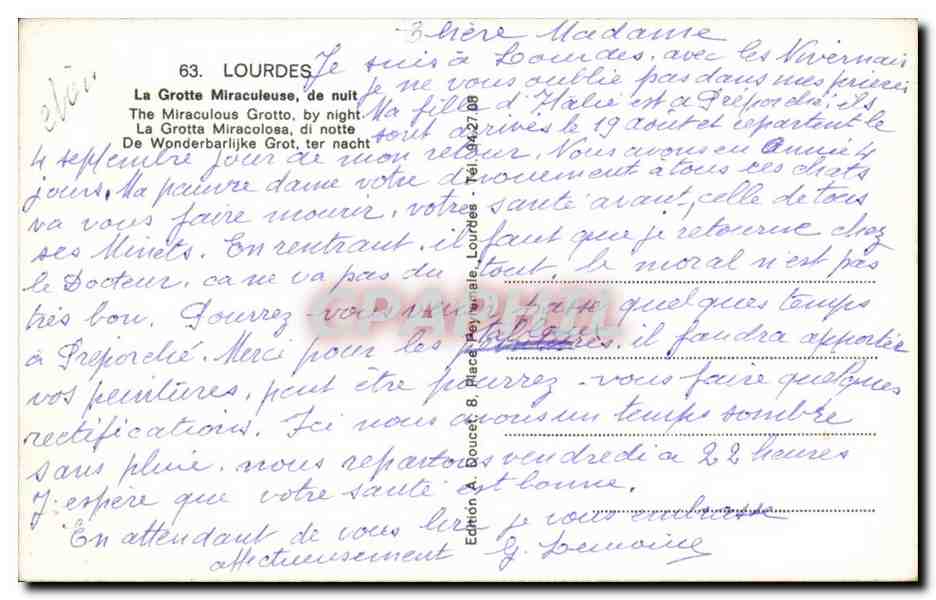 Chère Madame
63. LOURDES
La Grotte Miraculeuse, de nuit
The Miraculous Grotto, by night
La Grotta Miracolosa, di notte
De Wonderbarlijke Grot, ter nacht
Je suis à Lourdes, avec les Nivernais
je ne vous oublie pas dans mes prières
Ma fille d'Italie est à Préporché, ils
sont arrivés le 19 aout et repartent le
4 septembre jour de mon retour. Nous avons eu Annie 4
jours. Ma pauvre dame votre dévouement à tous ces chats
va vous faire mourir, votre santé avant, celle de tous
ses Minets. En rentrant, il faut que je retourne chez
le Docteur, ca ne va pas du tout, le moral n'est pas
très bon. Pourrez-vous venir passer quelques temps
à Préporché. Merci pour les tableaux, il faudra apporter
vos peintures, peut être pourrez-vous faire quelques
rectifications. Ici nous avons un temps sombre
sans pluie, nous repartons vendredi à 22 heures
J'espère que votre santé est bonne.
En attendant de vous lire je vous embrasse
affectueusement G. Lemoine
Edition A. Doucet, 8, Place Peyramale, Lourdes - Tél. 94.27.08
CPAPHIL